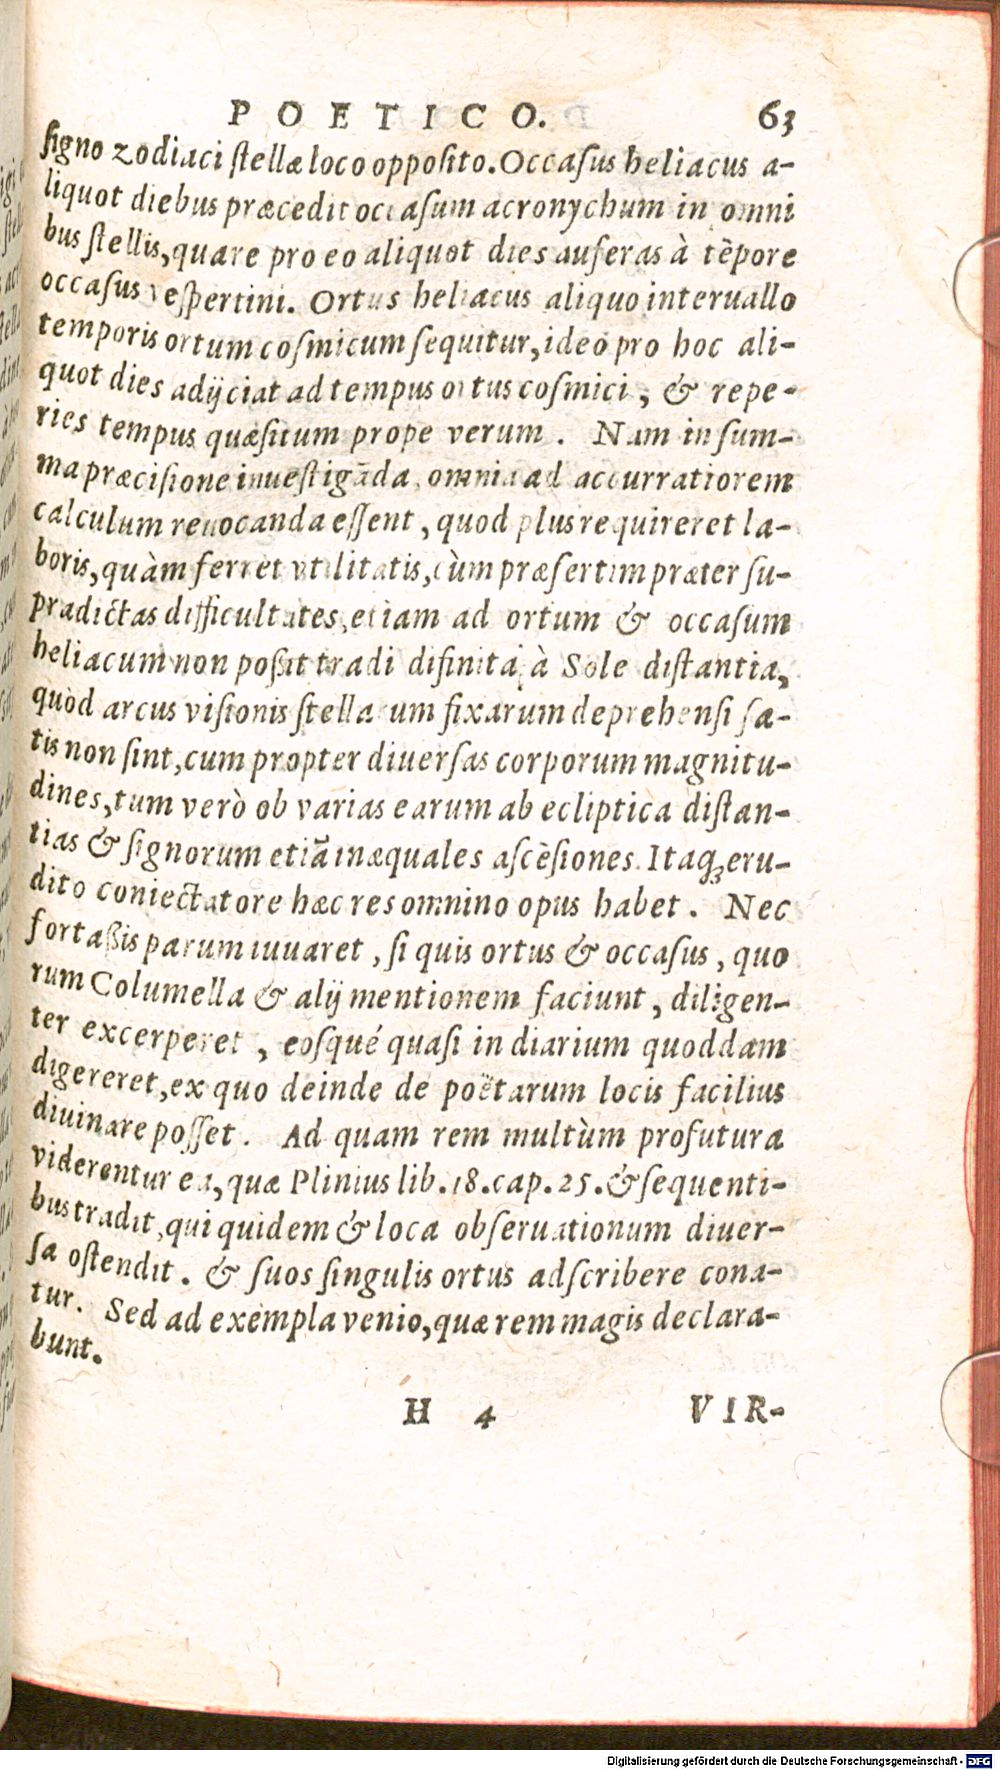 POETICO. 63
signo zodiaci stellæ loco opposito. Occasus heliacus a-
liquot diebus præcedit occasum acronychum in omni
bus stellis, quare pro eo aliquot dies auferas à tẽpore
occasus vespertini. Ortus heliacus aliquo interuallo
temporis ortum cosmicum sequitur, ideo pro hoc ali-
quot dies adijciat ad tempus ortus cosmici, & repe-
ries tempus quæsitum prope verum. Nam in sum-
ma præcisione inuestigãda, omnia ad accurratiorem
calculum reuocanda essent, quod plus requireret la-
boris, quàm ferret vtilitatis, cùm præsertim præter su-
pradictas difficultates, etiam ad ortum & occasum
heliacum non poßit tradi difinita à Sole distantia,
quòd arcus visionis stellarum fixarum deprehensi sa-
tis non sint, cum propter diuersas corporum magnitu-
dines, tum verò ob varias earum ab ecliptica distan-
tias & signorum etiã inæquales ascẽsiones. Itaqꝫ eru-
dito coniectatore hæc res omnino opus habet. Nec
fortaßis parum iuuaret, si quis ortus & occasus, quo
rum Columella & alij mentionem faciunt, diligen-
ter excerperet, eosqué quasi in diarium quoddam
digereret, ex quo deinde de poëtarum locis facilius
diuinare posset. Ad quam rem multùm profutura
viderentur ea, quæ Plinius lib. 18. cap. 25. & sequenti-
bus tradit, qui quidem & loca obseruationum diuer-
sa ostendit. & suos singulis ortus adscribere cona-
tur. Sed ad exempla venio, quæ rem magis declara-
bunt.
H 4 VIR-
Digitalisierung gefördert durch die Deutsche Forschungsgemeinschaft - DFG